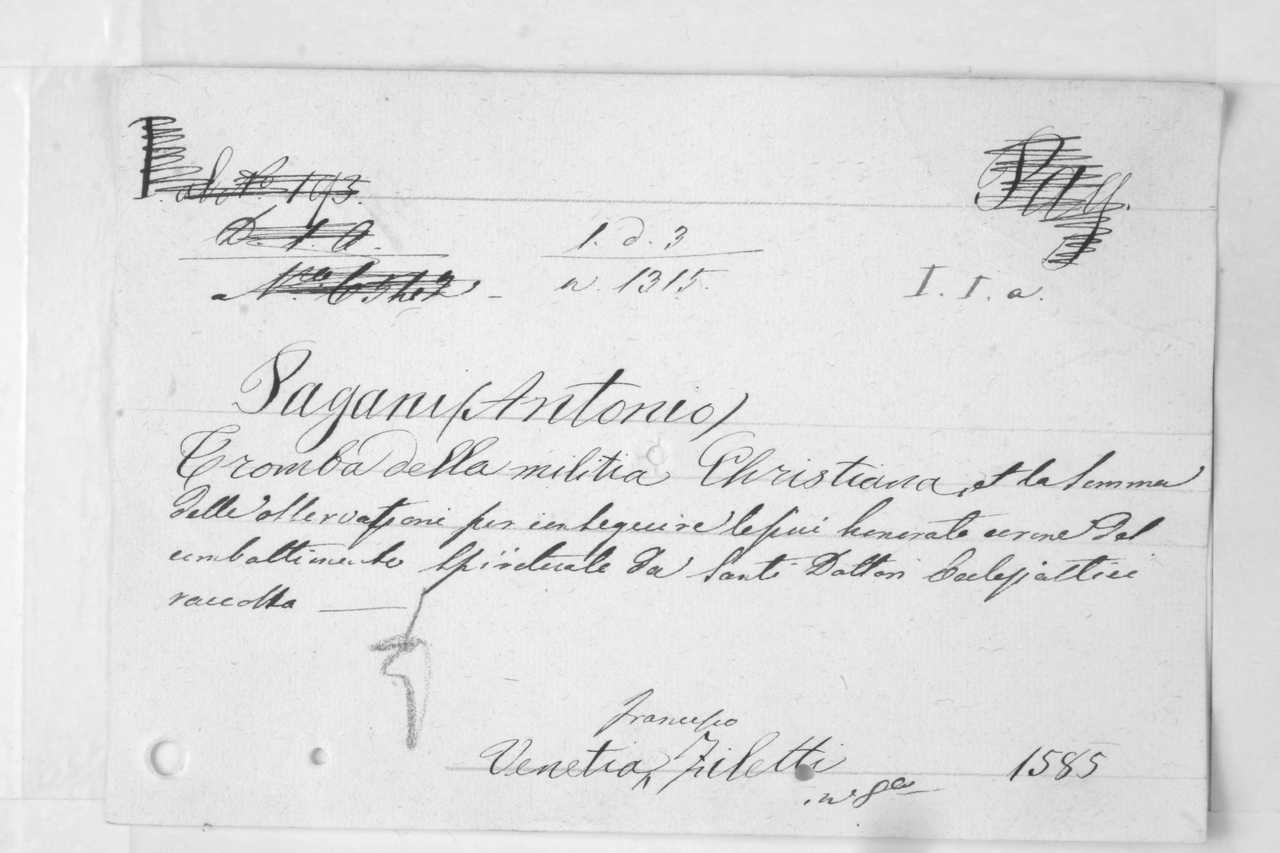 Pag.
1. d. 3
n. 1315.
I. I. a.
Pagani (Antonio)
Tromba della militia Christiana, et la somma
delle osservationi per conseguire le piu honorate corone del
combattimento Spirituale da Santi Dottori Eclesiastici
raccolta
francesco
Venetia, Ziletti 1585
in 8º